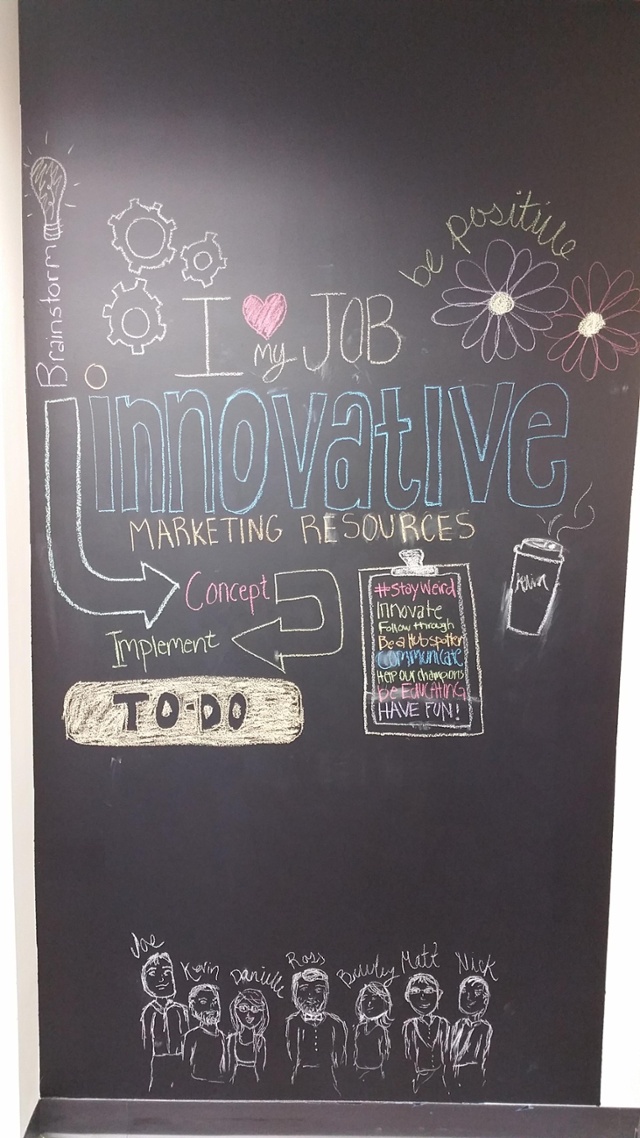 be positive
Brainstorm
I ♥ my JOB
innovative
MARKETING RESOURCES
Concept
Implement
#stayweird
Innovate
Follow through
Be a Hubspotter
Communicate
Help our champions
be EDUCATING
HAVE FUN!
TO-DO
Joe
Kevin
Danielle
Ross
Matt
Nick